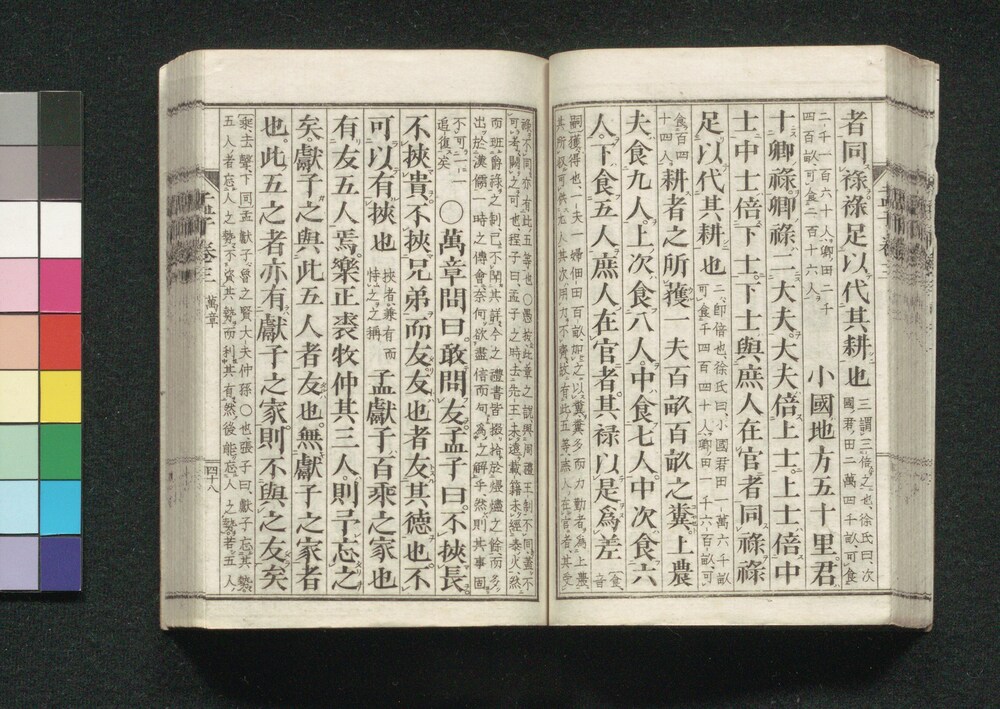 者同祿祿足以代其耕也 三謂三倍之也徐氏曰次國君田二萬四千畝可食
二千一百六十人卿田二千四百畝可食二百十六人 小國地方五十里君
十卿祿卿祿二大夫大夫倍上士上士倍中
士中士倍下士下士與庶人在官者同祿祿
足以代其耕也 二即倍也徐氏曰小國君田一萬六千畝可食千四百四十人卿田一千六百畝可
食百四十四人 耕者之所獲一夫百畝百畝之糞上農
夫食九人上次食八人中食七人中次食六
人下食五人庶人在官者其祿以是爲差 食音
嗣獲得也一夫一婦佃田百畝加之以糞糞多而力勤者爲上農
其所收可供九人其次用力不齊故有此五等庶人在官者其受
祿不同亦有此五等也〇愚按此章之說與周禮王制不同蓋不
可考闕之可也程子曰孟子之時去先王未遠載籍未經秦火然
而班爵祿之制已不聞其詳今之禮書皆掇拾於煨燼之餘而多
出於漢儒一時之傅會奈何欲盡信而句爲之解乎然則其事固
不可一一追復矣 〇萬章問曰敢問友孟子曰不挾長
不挾貴不挾兄弟而友友也者友其德也不
可以有挾也 挾者兼有而恃之之稱 孟獻子百乘之家也
有友五人焉樂正裘牧仲其三人則予忘之
矣獻子之與此五人者友也無獻子之家者
也此五之者亦有獻子之家則不與之友矣
乘去聲下同孟獻子魯之賢大夫仲孫〇也張子曰獻子忘其勢
五人者忘人之勢不資其勢而利其有然後能忘人之勢若五人
孟子 卷三 萬章
四十八